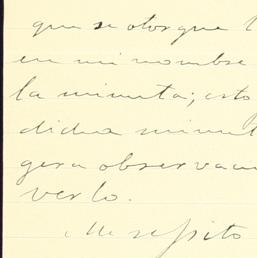 que se otorgue
en mi nombre
la minuta; esto
dicha minut
gera observac
verlo.
Me repito